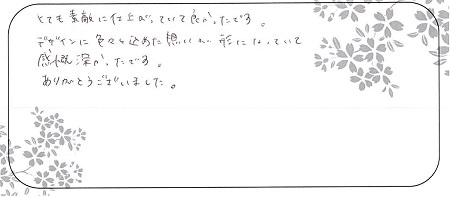 とても素敵に仕上がっていて良かったです。
デザインに色々と込めた想いが形になっていて
感慨深かったです。
ありがとうございました。